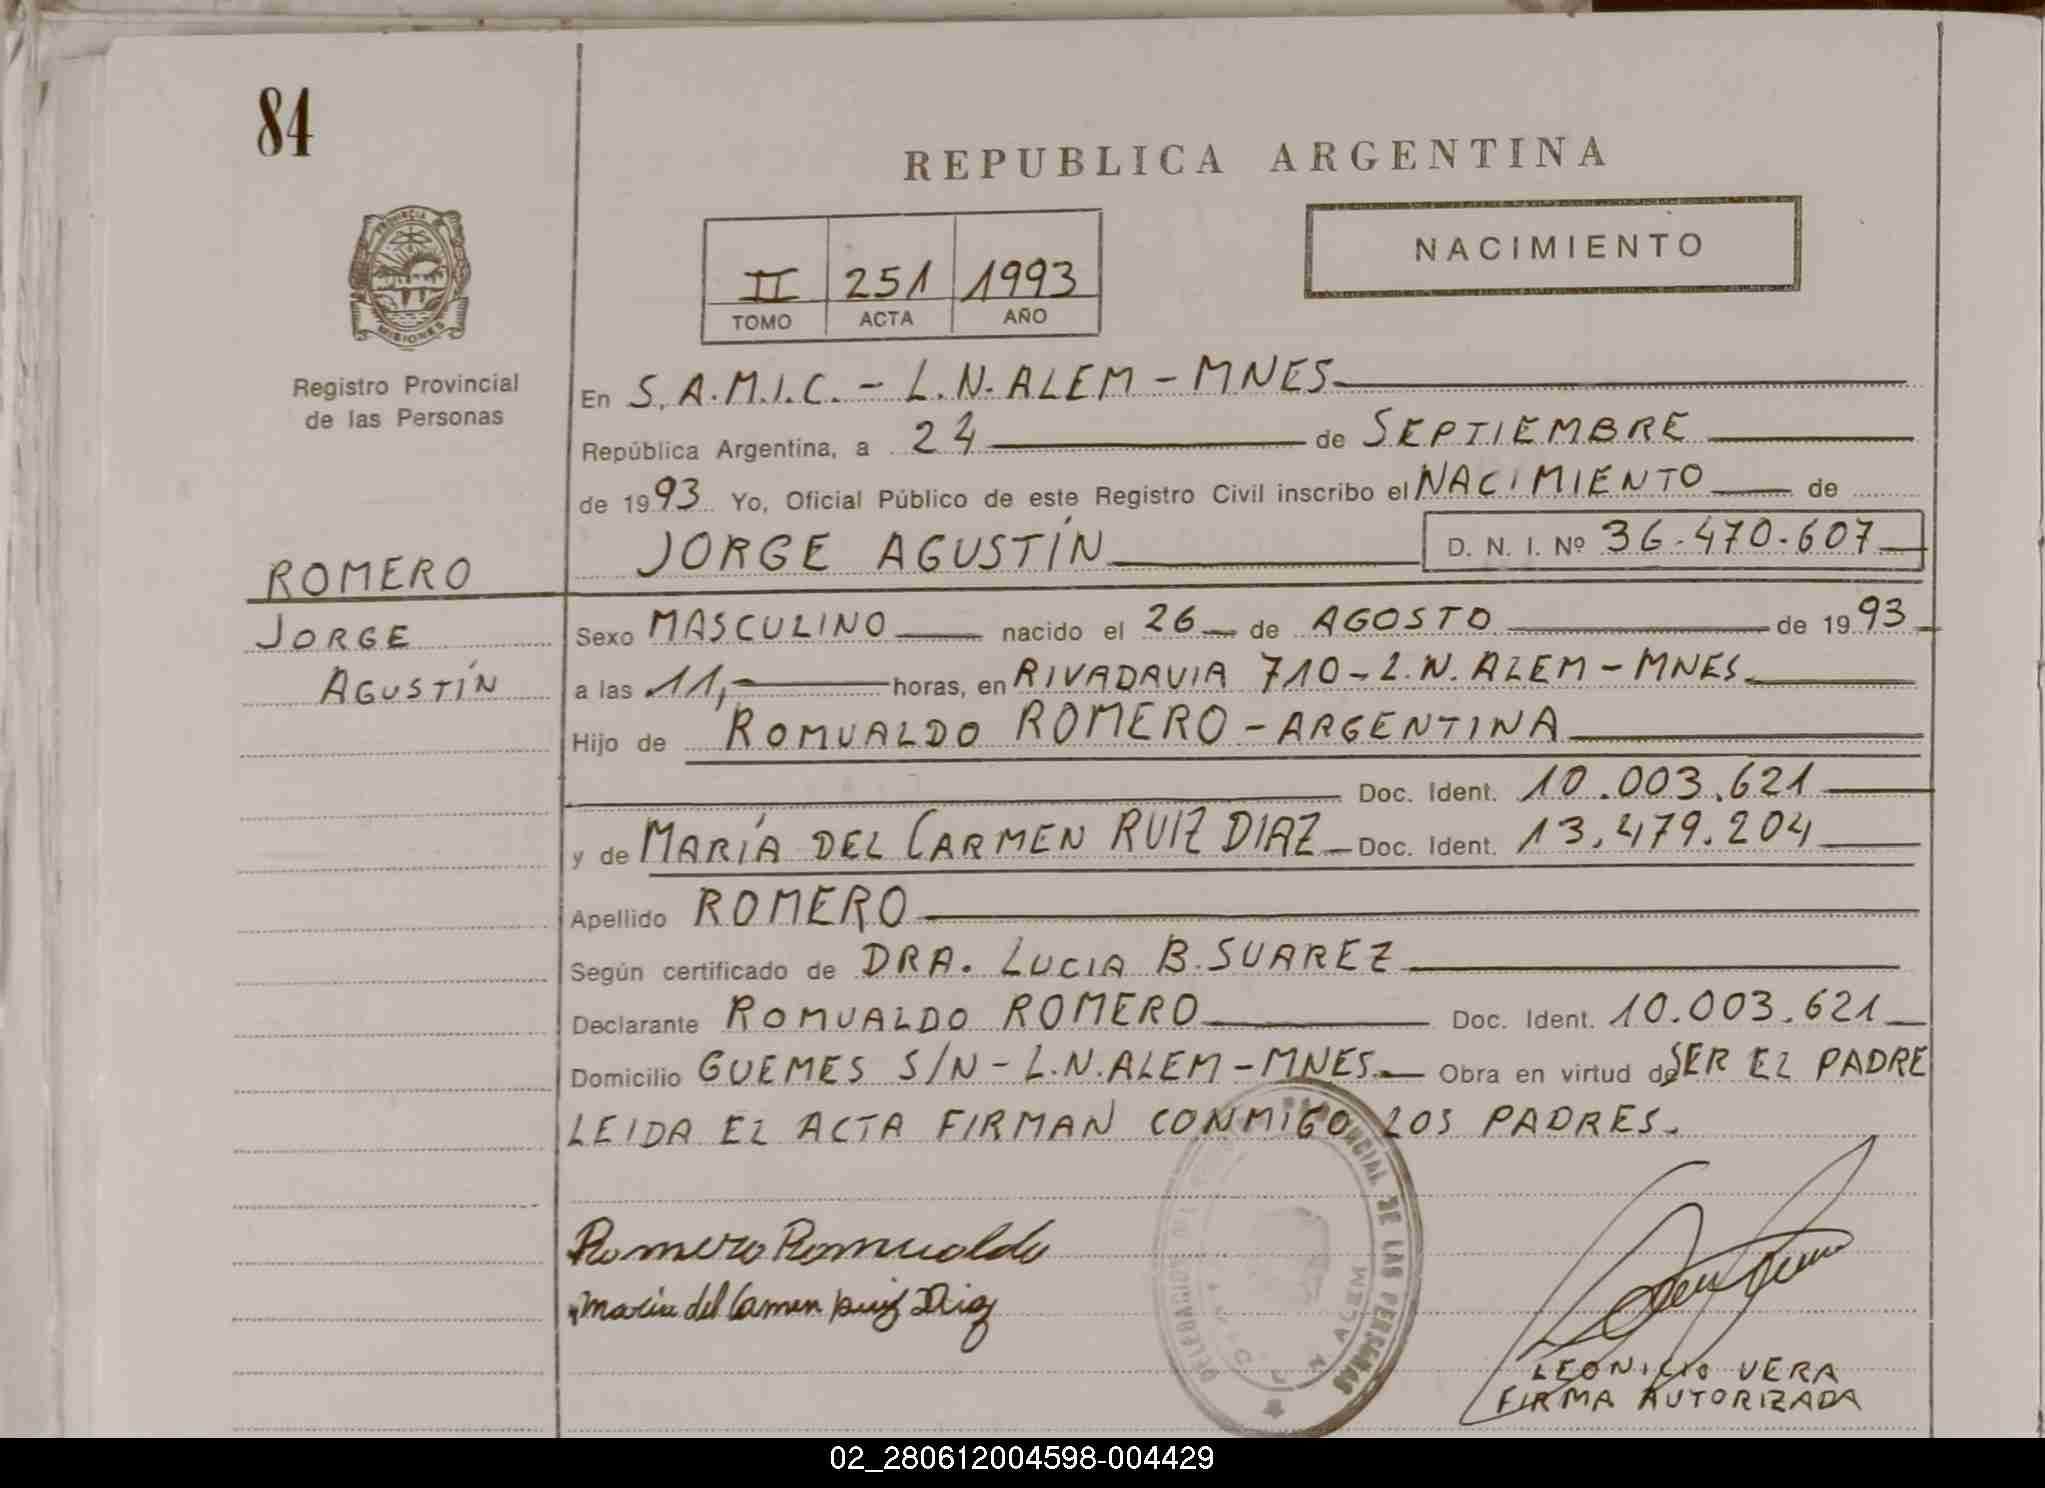 84
REPUBLICA ARGENTINA
PROVINCIA DE
MISIONES
NACIMIENTO
II 251 1993
TOMO ACTA AÑO
Registro Provincial
de las Personas
En S.A.M.I.C. - L.N. ALEM - MNES
República Argentina, a 24 de SEPTIEMBRE
de 1993 Yo, Oficial Público de este Registro Civil inscribo el NACIMIENTO de
JORGE AGUSTÍN D. N. I. Nº 36.470.607
ROMERO
JORGE
AGUSTÍN
Sexo MASCULINO nacido el 26 de AGOSTO de 1993
a las 11, horas, en RIVADAVIA 710 - L.N. ALEM - MNES.
Hijo de ROMUALDO ROMERO - ARGENTINA
Doc. Ident. 10.003.621
y de MARÍA DEL CARMEN RUIZ DIAZ Doc. Ident. 13.479.204
Apellido ROMERO
Según certificado de DRA. LUCIA B. SUAREZ
Declarante ROMUALDO ROMERO Doc. Ident. 10.003.621
Domicilio GUEMES S/N - L.N. ALEM - MNES. Obra en virtud de SER EL PADRE
LEIDA EL ACTA FIRMAN CONMIGO LOS PADRES.
Romero Romualdo
Maria del Carmen Ruiz Diaz
DELEGACION DEL PROVINCIAL DE LAS PERSONAS
L. N. ALEM
LEONICIO VERA
FIRMA AUTORIZADA
02_280612004598-004429